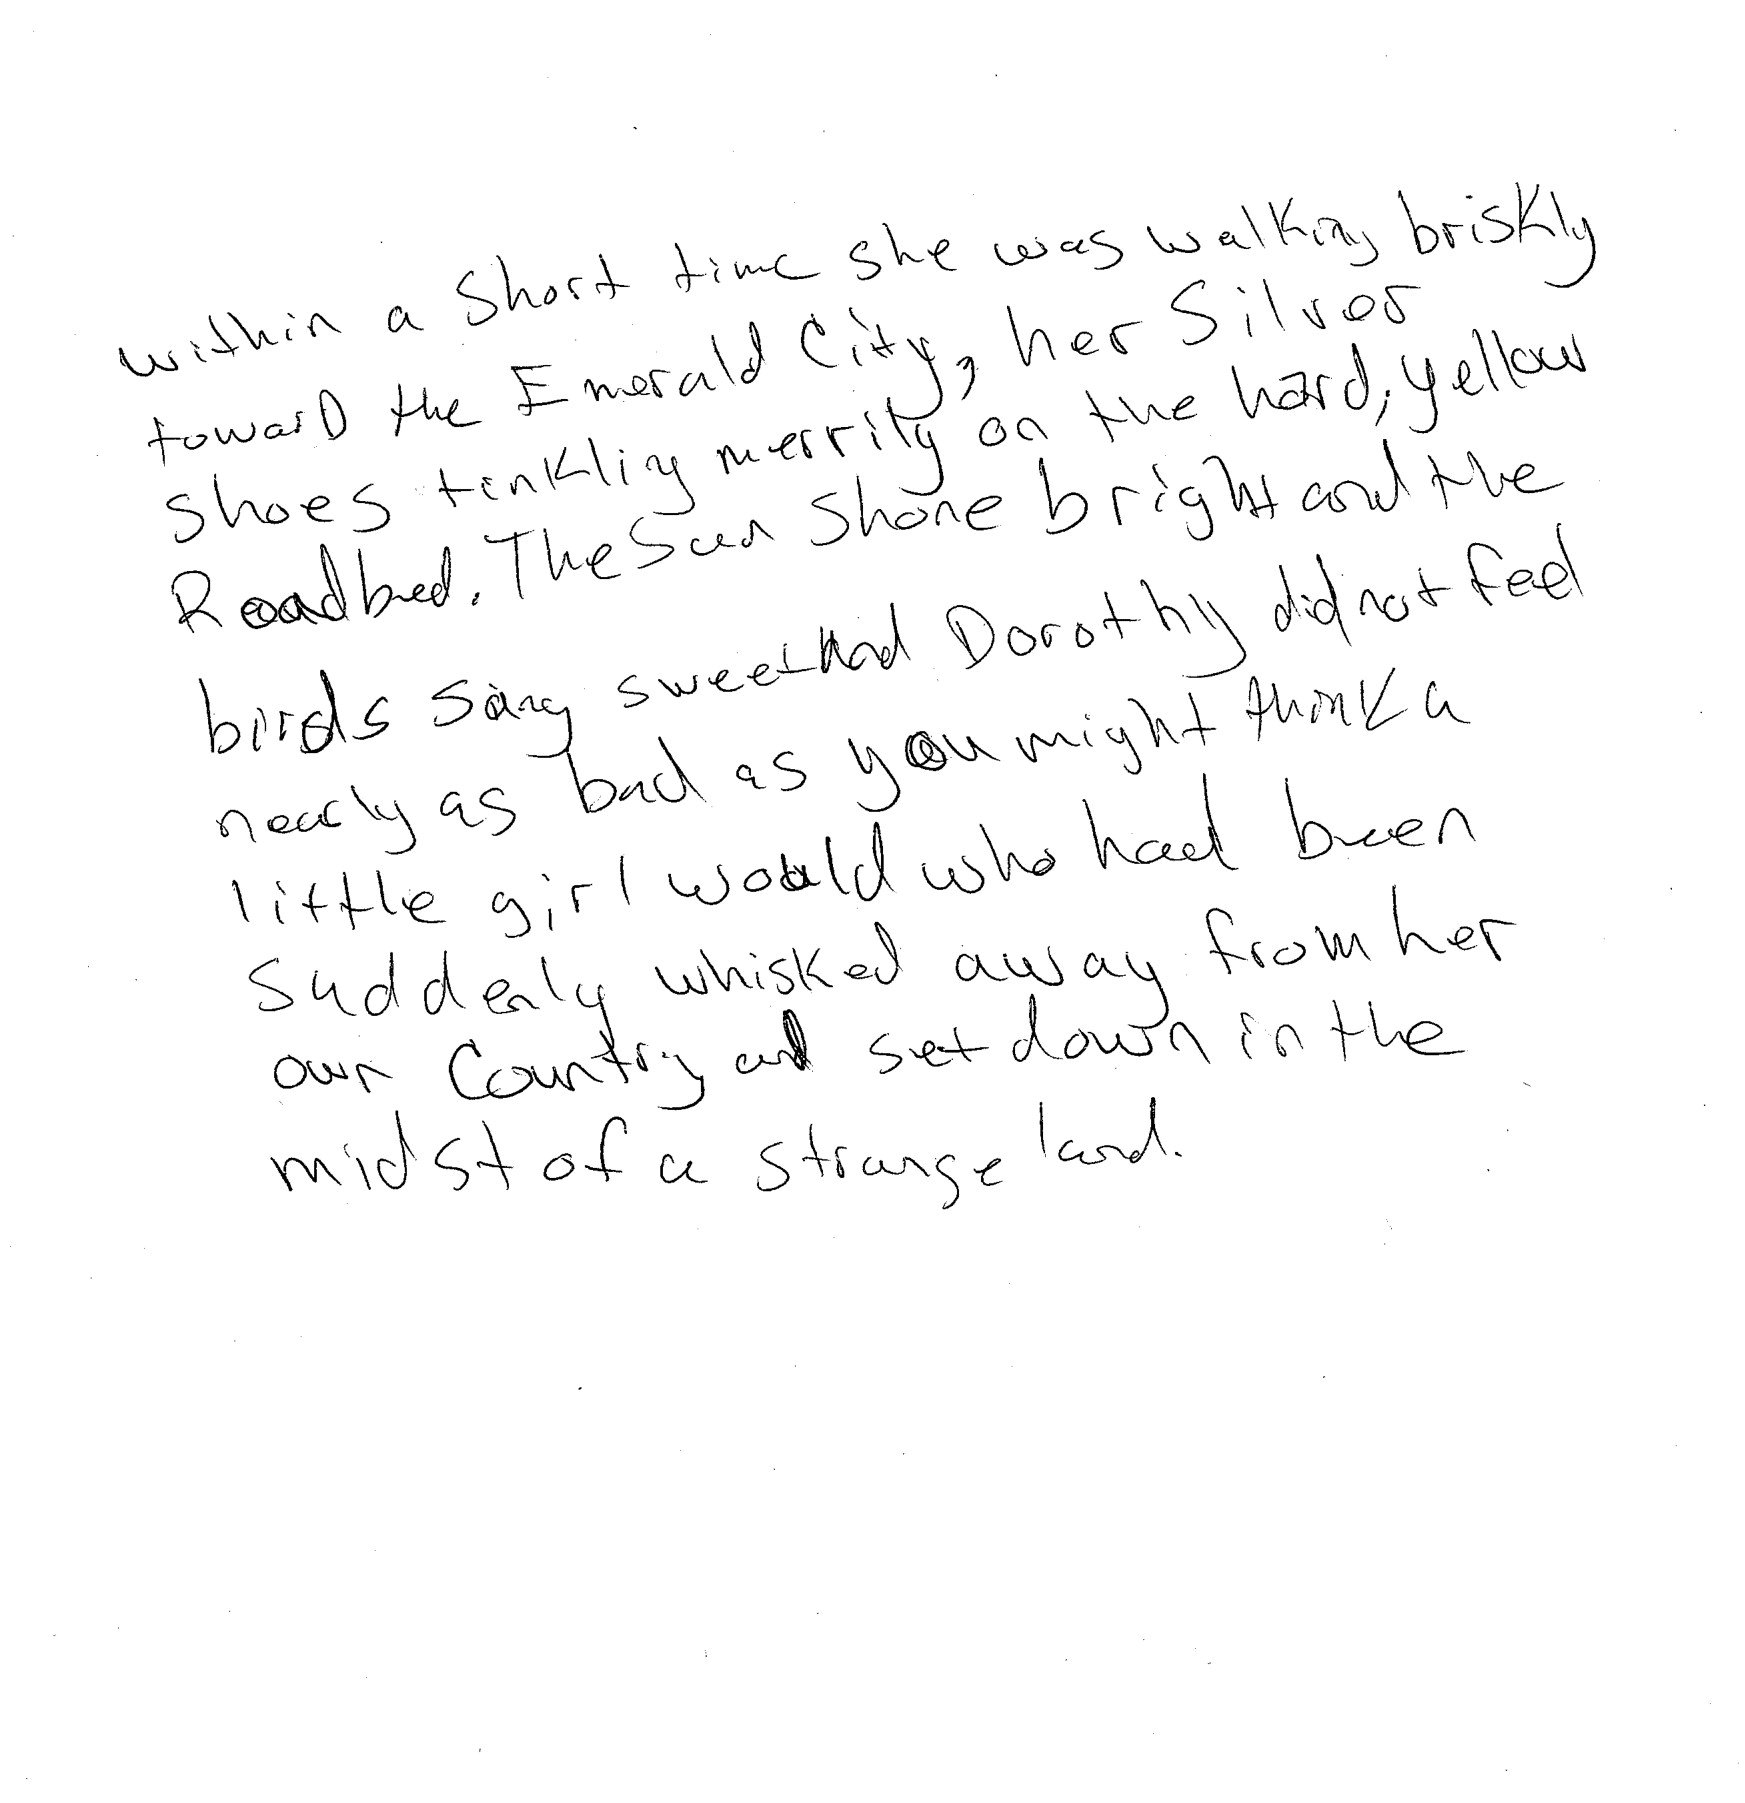 within a short time she was walking briskly
toward the Emerald City, her Silver
shoes tinkling merrily on the hard, yellow
Roadbed. The Sun Shone bright and the
birds sang sweet and Dorothy did not feel
nearly as bad as you might think a
little girl would who had been
suddenly whisked away from her
own Country and set down in the
midst of a strange land.